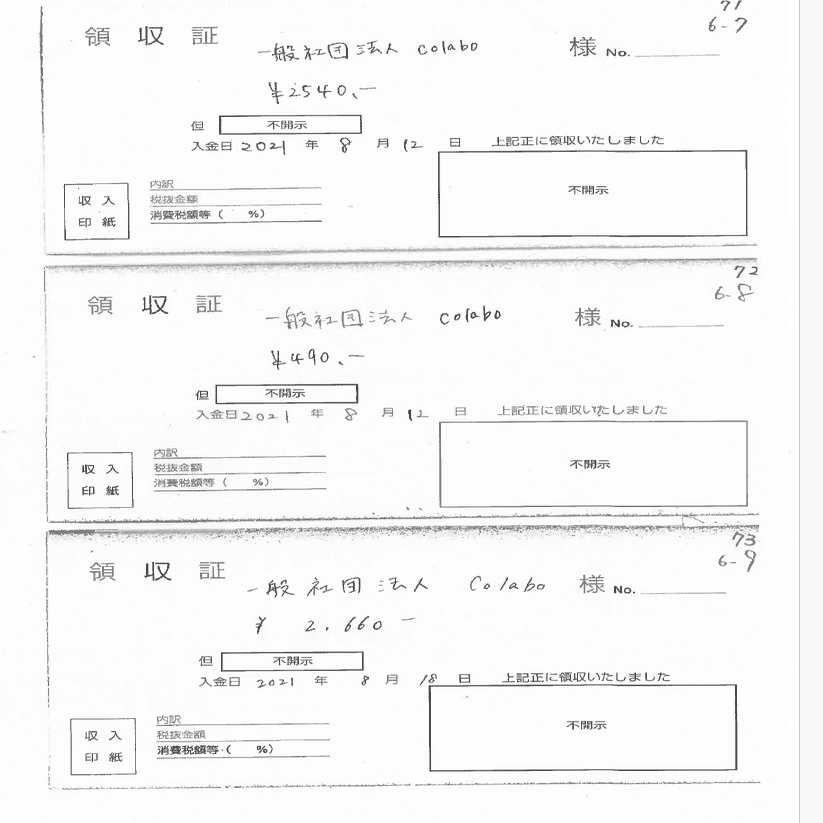 71
6-7
領 収 証 一般社団法人 colabo 様 No.
¥2540.-
但 不開示
入金日 2021 年 8 月 12 日 上記正に領収いたしました
不開示
収 入
印 紙
内訳
税抜金額
消費税額等 ( %)
72
6-8
領 収 証 一般社団法人 colabo 様 No.
¥490.-
但 不開示
入金日 2021 年 8 月 12 日 上記正に領収いたしました
不開示
収 入
印 紙
内訳
税抜金額
消費税額等 ( %)
73
6-9
領 収 証 一般社団法人 Colabo 様 No.
¥ 2.660 -
但 不開示
入金日 2021 年 8 月 18 日 上記正に領収いたしました
不開示
収 入
印 紙
内訳
税抜金額
消費税額等 ( %)